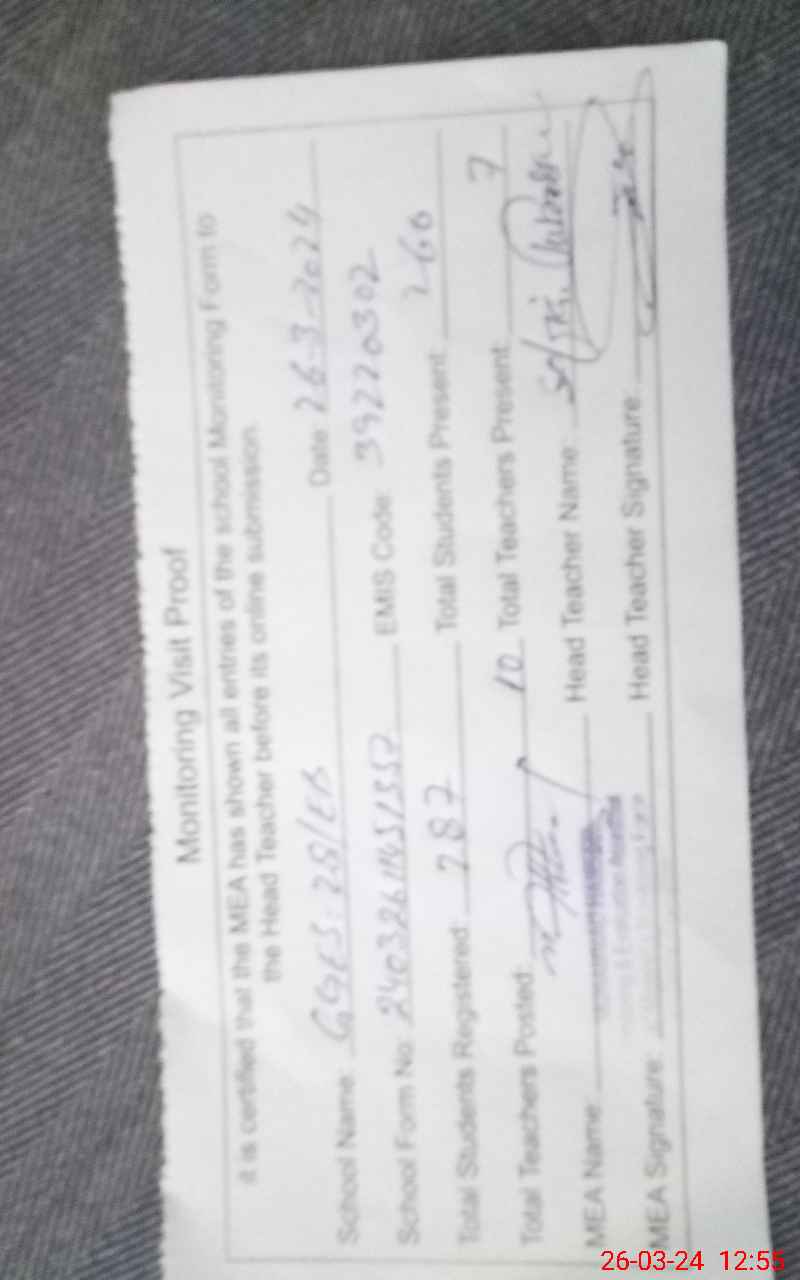 Monitoring Visit Proof
it is certified that the MEA has shown all entries of the school Monitoring Form to
the Head Teacher before its online submission.
School Name: GGES 28/EB Date: 26-3-2024
School Form No: EMIS Code: 39220302
Total Students Registered: 287 Total Students Present: 260
Total Teachers Posted: 10 Total Teachers Present: 7
MEA Name: Head Teacher Name:
MEA Signature: Head Teacher Signature:
26-03-24 12:55